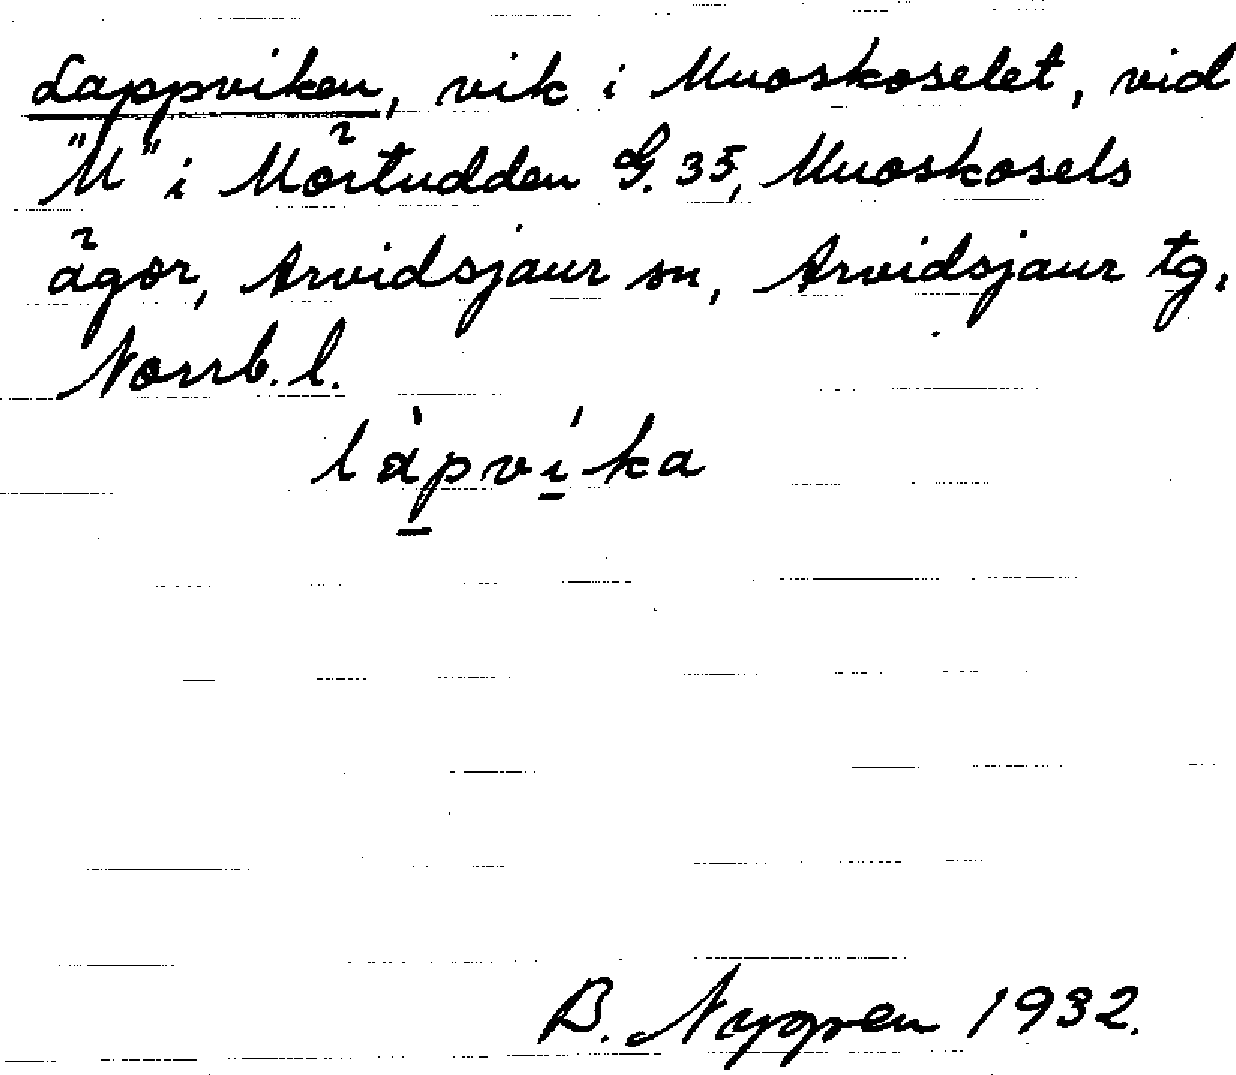 Lappviken, vik i Muoskoselet, vid
"M" i Mörtudden G. 35, Muoskosels
ägor, Arvidsjaur sn, Arvidsjaur tg,
Norrb. l.
lápvíka
B. Nygren 1932.